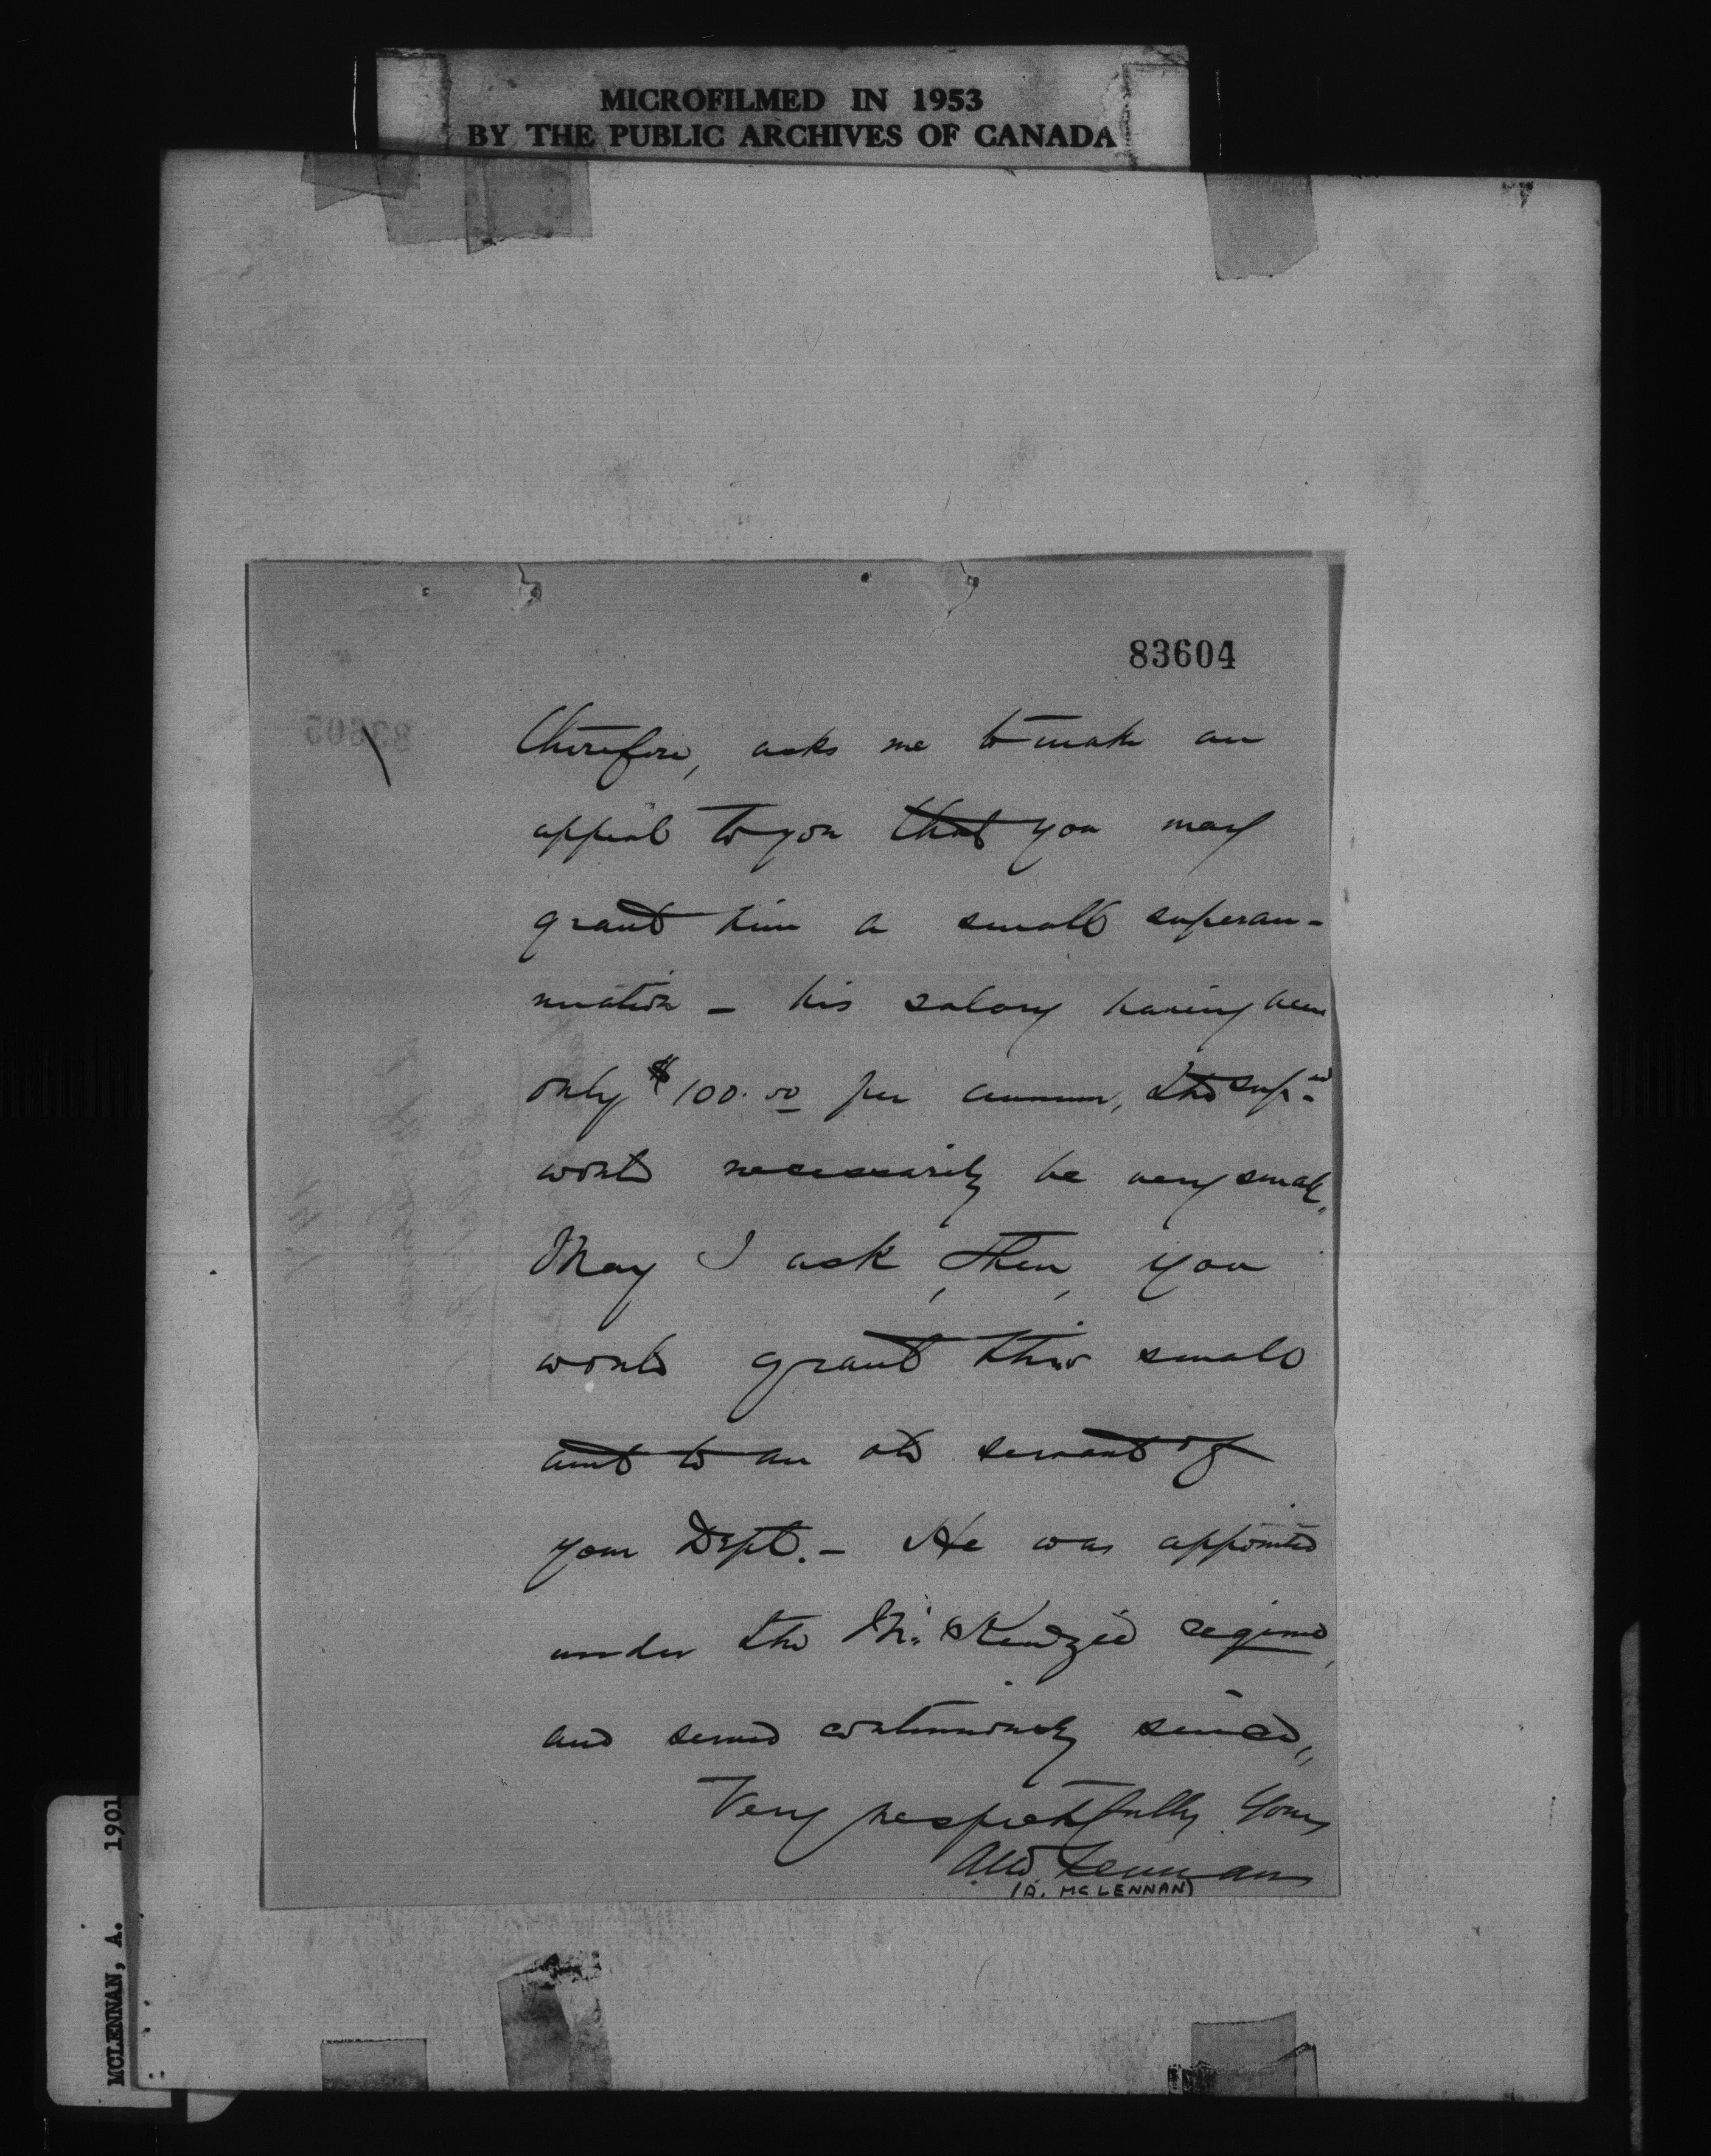 MICROFILMED IN 1953
BY THE PUBLIC ARCHIVES OF CANADA
83604
83605
therefore, asks me to make an
appeal to you that you may
grant him a small superan-
nuation - his salary having been
only $100.00 per annum, the sup.n
would necessarily be very small.
May I ask, then, you
would grant this small
amt to an old servant of
your Dept. - He was appointed
under the McKenzie regime,
and served continuously since,
Very respectfully Yours
A McLennan
(A. MCLENNAN)
MCLENNAN, A. 1901